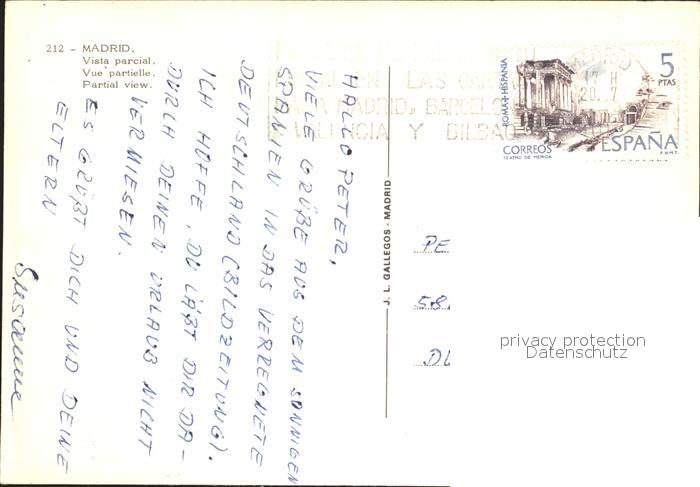 212 - MADRID.
Vista parcial.
Vue partielle.
Partial view.
HALLO PETER,
VIELE GRÜßE AUS DEM SONNIGEN
SPANIEN IN DAS VERREGNETE
DEUTSCHLAND (BILDZEITUNG).
ICH HOFFE, DU LÄßT DIR DA-
DURCH DEINEN URLAUB NICHT
VERMIESEN.
ES GRÜßT DICH UND DEINE
ELTERN
Susanne
J. L. GALLEGOS - MADRID
LAS
MADRID, BARCELO
VALENCIA Y BILBAO
MADRID
17 H
20
7
ROMA+HISPANIA
5
PTAS
CORREOS
ESPAÑA
TEATRO DE MERIDA
F.N.M.T.
PE
58
DU
privacy protection
Datenschutz